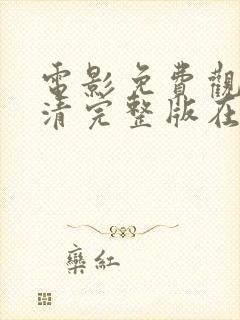 電影免費觀
清完整版在
欒紅